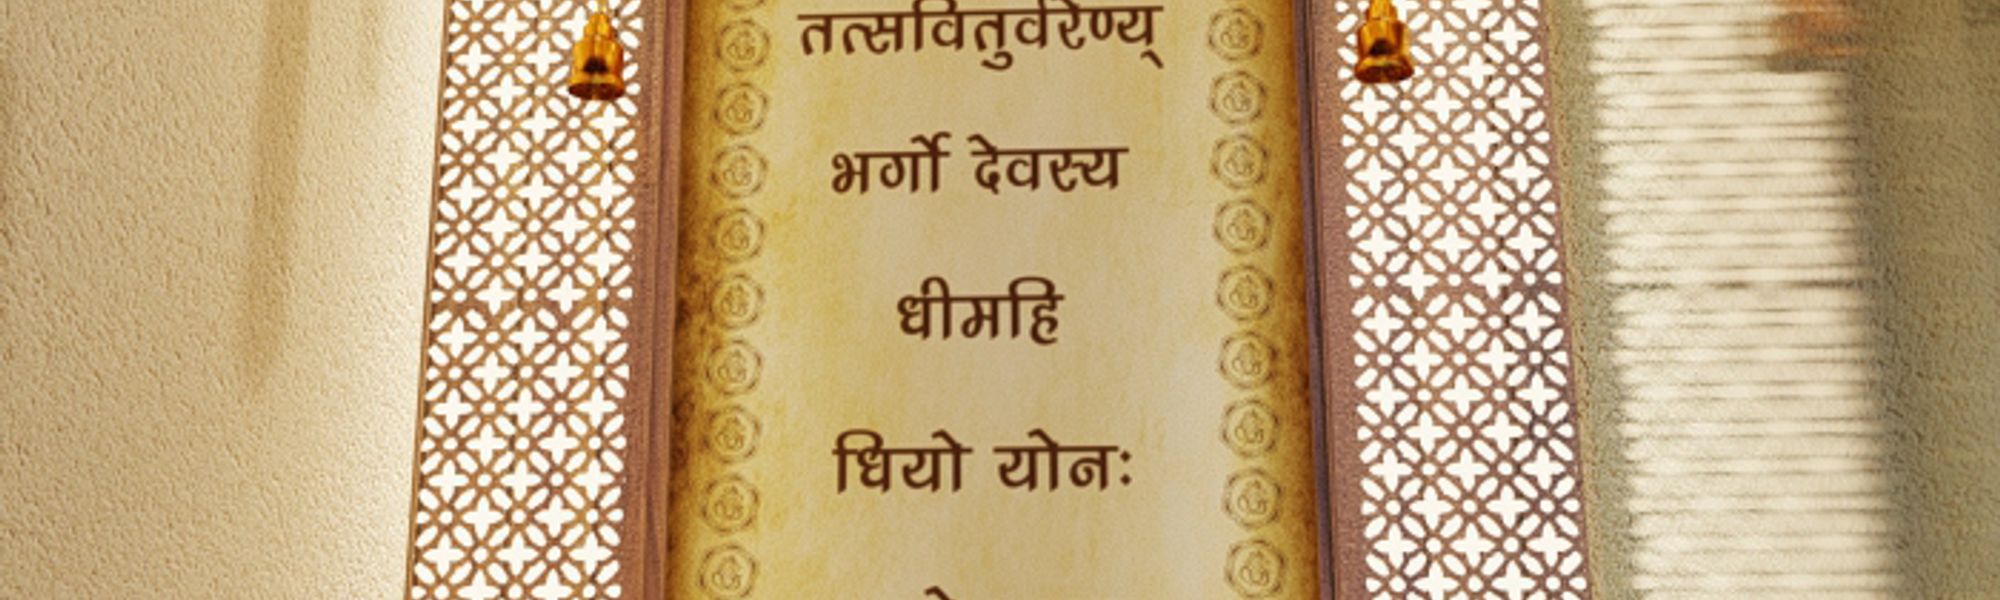 तत्सवितुर्वरेण्य्
भर्गो देवस्य
धीमहि
धियो योनः